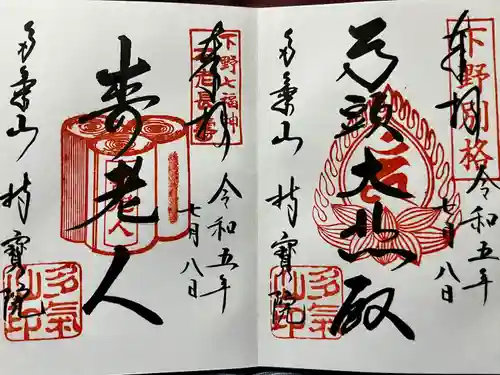 奉拝
下野別格
令和五年
七月八日
馬頭大悲殿
多氣山 持寶院
多氣山印
奉拝
下野七福神
不老長壽
令和五年
七月八日
壽老人
多氣山 持寶院
多氣山印